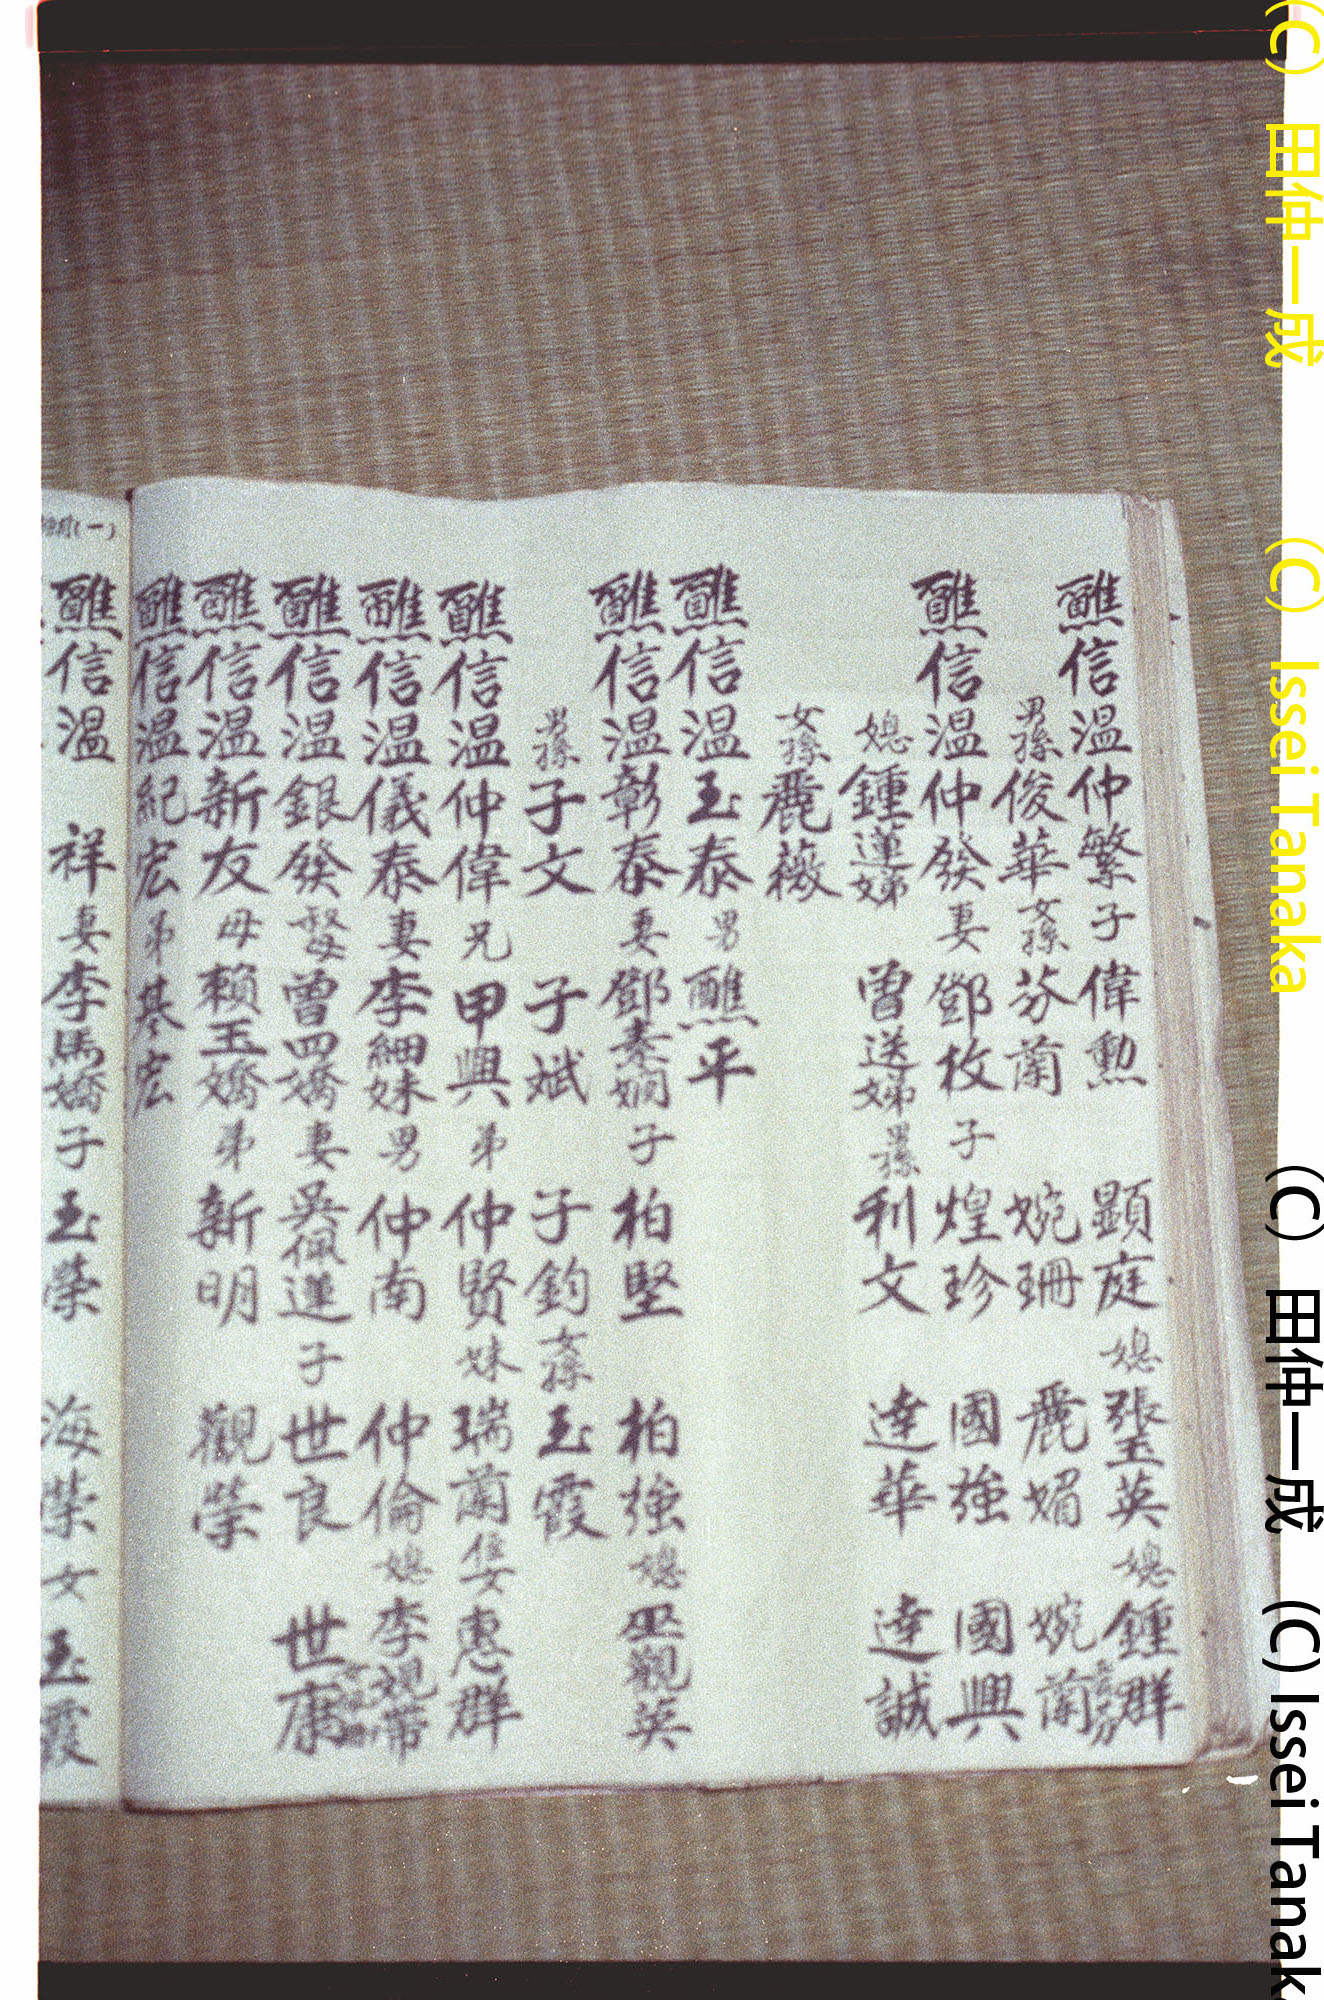 醮信温仲繁子偉勲 顕庭媳張玉英媳鍾群
男孫俊華女孫芬蘭 婉珊 麗媚 婉蘭
醮信温仲發妻鄧枚子煌珍 國強 國興
媳鍾蓮娣 曾送娣男孫利文 達華 達誠
女孫麗薇
醮信温玉泰男醮平
醮信温彰泰妻鄧素嫻子柏堅 柏強媳巫觀英
男孫子文 子斌 子鈞女孫玉霞
醮信温仲偉兄甲興弟仲賢妹瑞蘭侄女惠群
醮信温儀泰妻李細妹男仲南 仲倫媳李觀帶
醮信温銀發母曾四嬌妻吳佩蓮子世良 世康
醮信温新友母賴玉嬌弟新明 觀榮
醮信温紀宏弟基宏
(一)
醮信温 祥妻李馬嬌子玉榮 海榮女玉霞
(C) 田仲一成 (C) Issei Tanaka (C) 田仲一成 (C) Issei Tanak